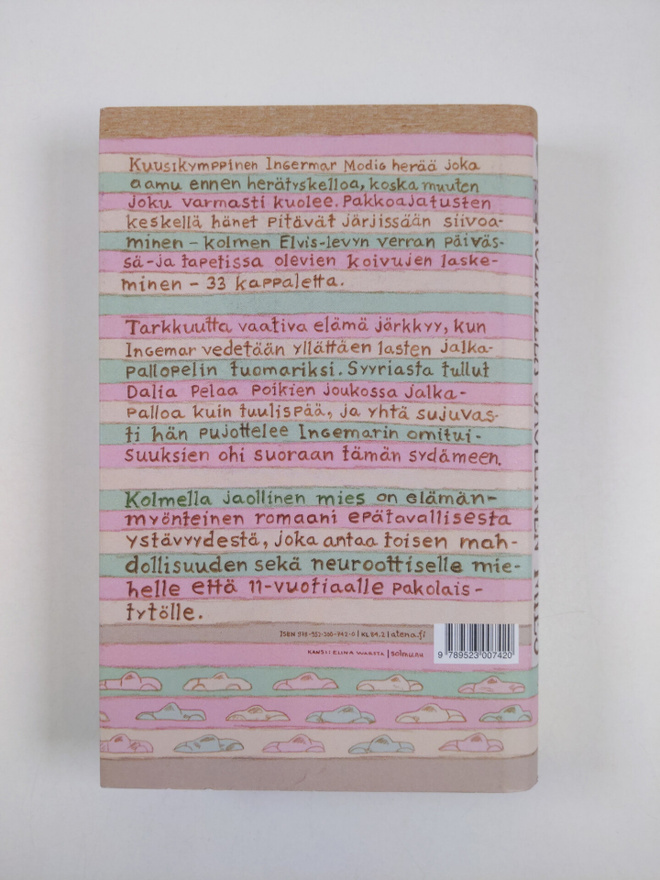 Kuusikymppinen Ingermar Modig herää joka
aamu ennen herätyskelloa, koska muuten
joku varmasti kuolee. Pakkoajatusten
keskellä hänet pitävät järjissään siivoa-
minen – kolmen Elvis-levyn verran päiväs-
sä – ja tapetissa olevien koivujen laske-
minen – 33 kappaletta.
Tarkkuutta vaativa elämä järkkyy, kun
Ingemar vedetään yllättäen lasten jalka-
pallopelin tuomariksi. Syyriasta tullut
Dalia pelaa poikien joukossa jalka-
palloa kuin tuulispää, ja yhtä sujuvas-
ti hän pujottelee Ingemarin omitui-
suuksien ohi suoraan tämän sydämeen.
Kolmella jaollinen mies on elämän-
myönteinen romaani epätavallisesta
ystävyydestä, joka antaa toisen mah-
dollisuuden sekä neuroottiselle mie-
helle että 11-vuotiaalle pakolais-
tytölle.
ISBN 978-952-300-742-0 | KL 84.2 | atena.fi
KANSI: ELINA WARSTA |
9 789523 007420